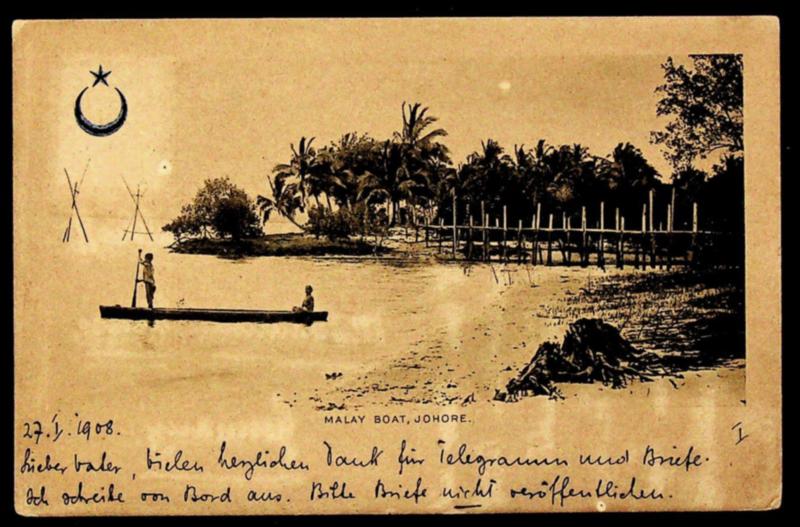 MALAY BOAT, JOHORE.
27. I. 1908.
I
Lieber Vater, vielen herzlichen Dank für Telegramm und Briefe.
Ich schreibe von Bord aus. Bitte Briefe nicht veröffentlichen.